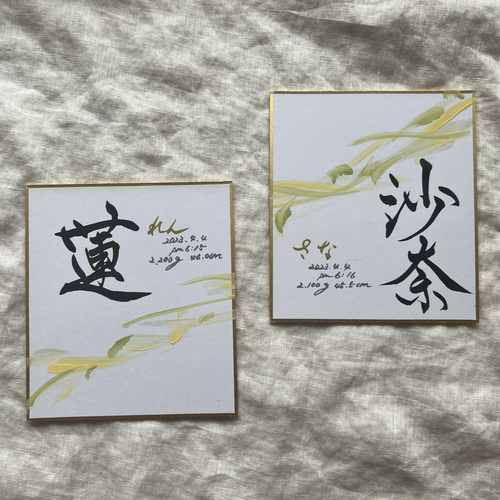 蓮
れん
2023.4.4
pm 6:15
2,200g 46.0cm
沙奈
さな
2023.4.4
pm 6:16
2,100g 45.5cm